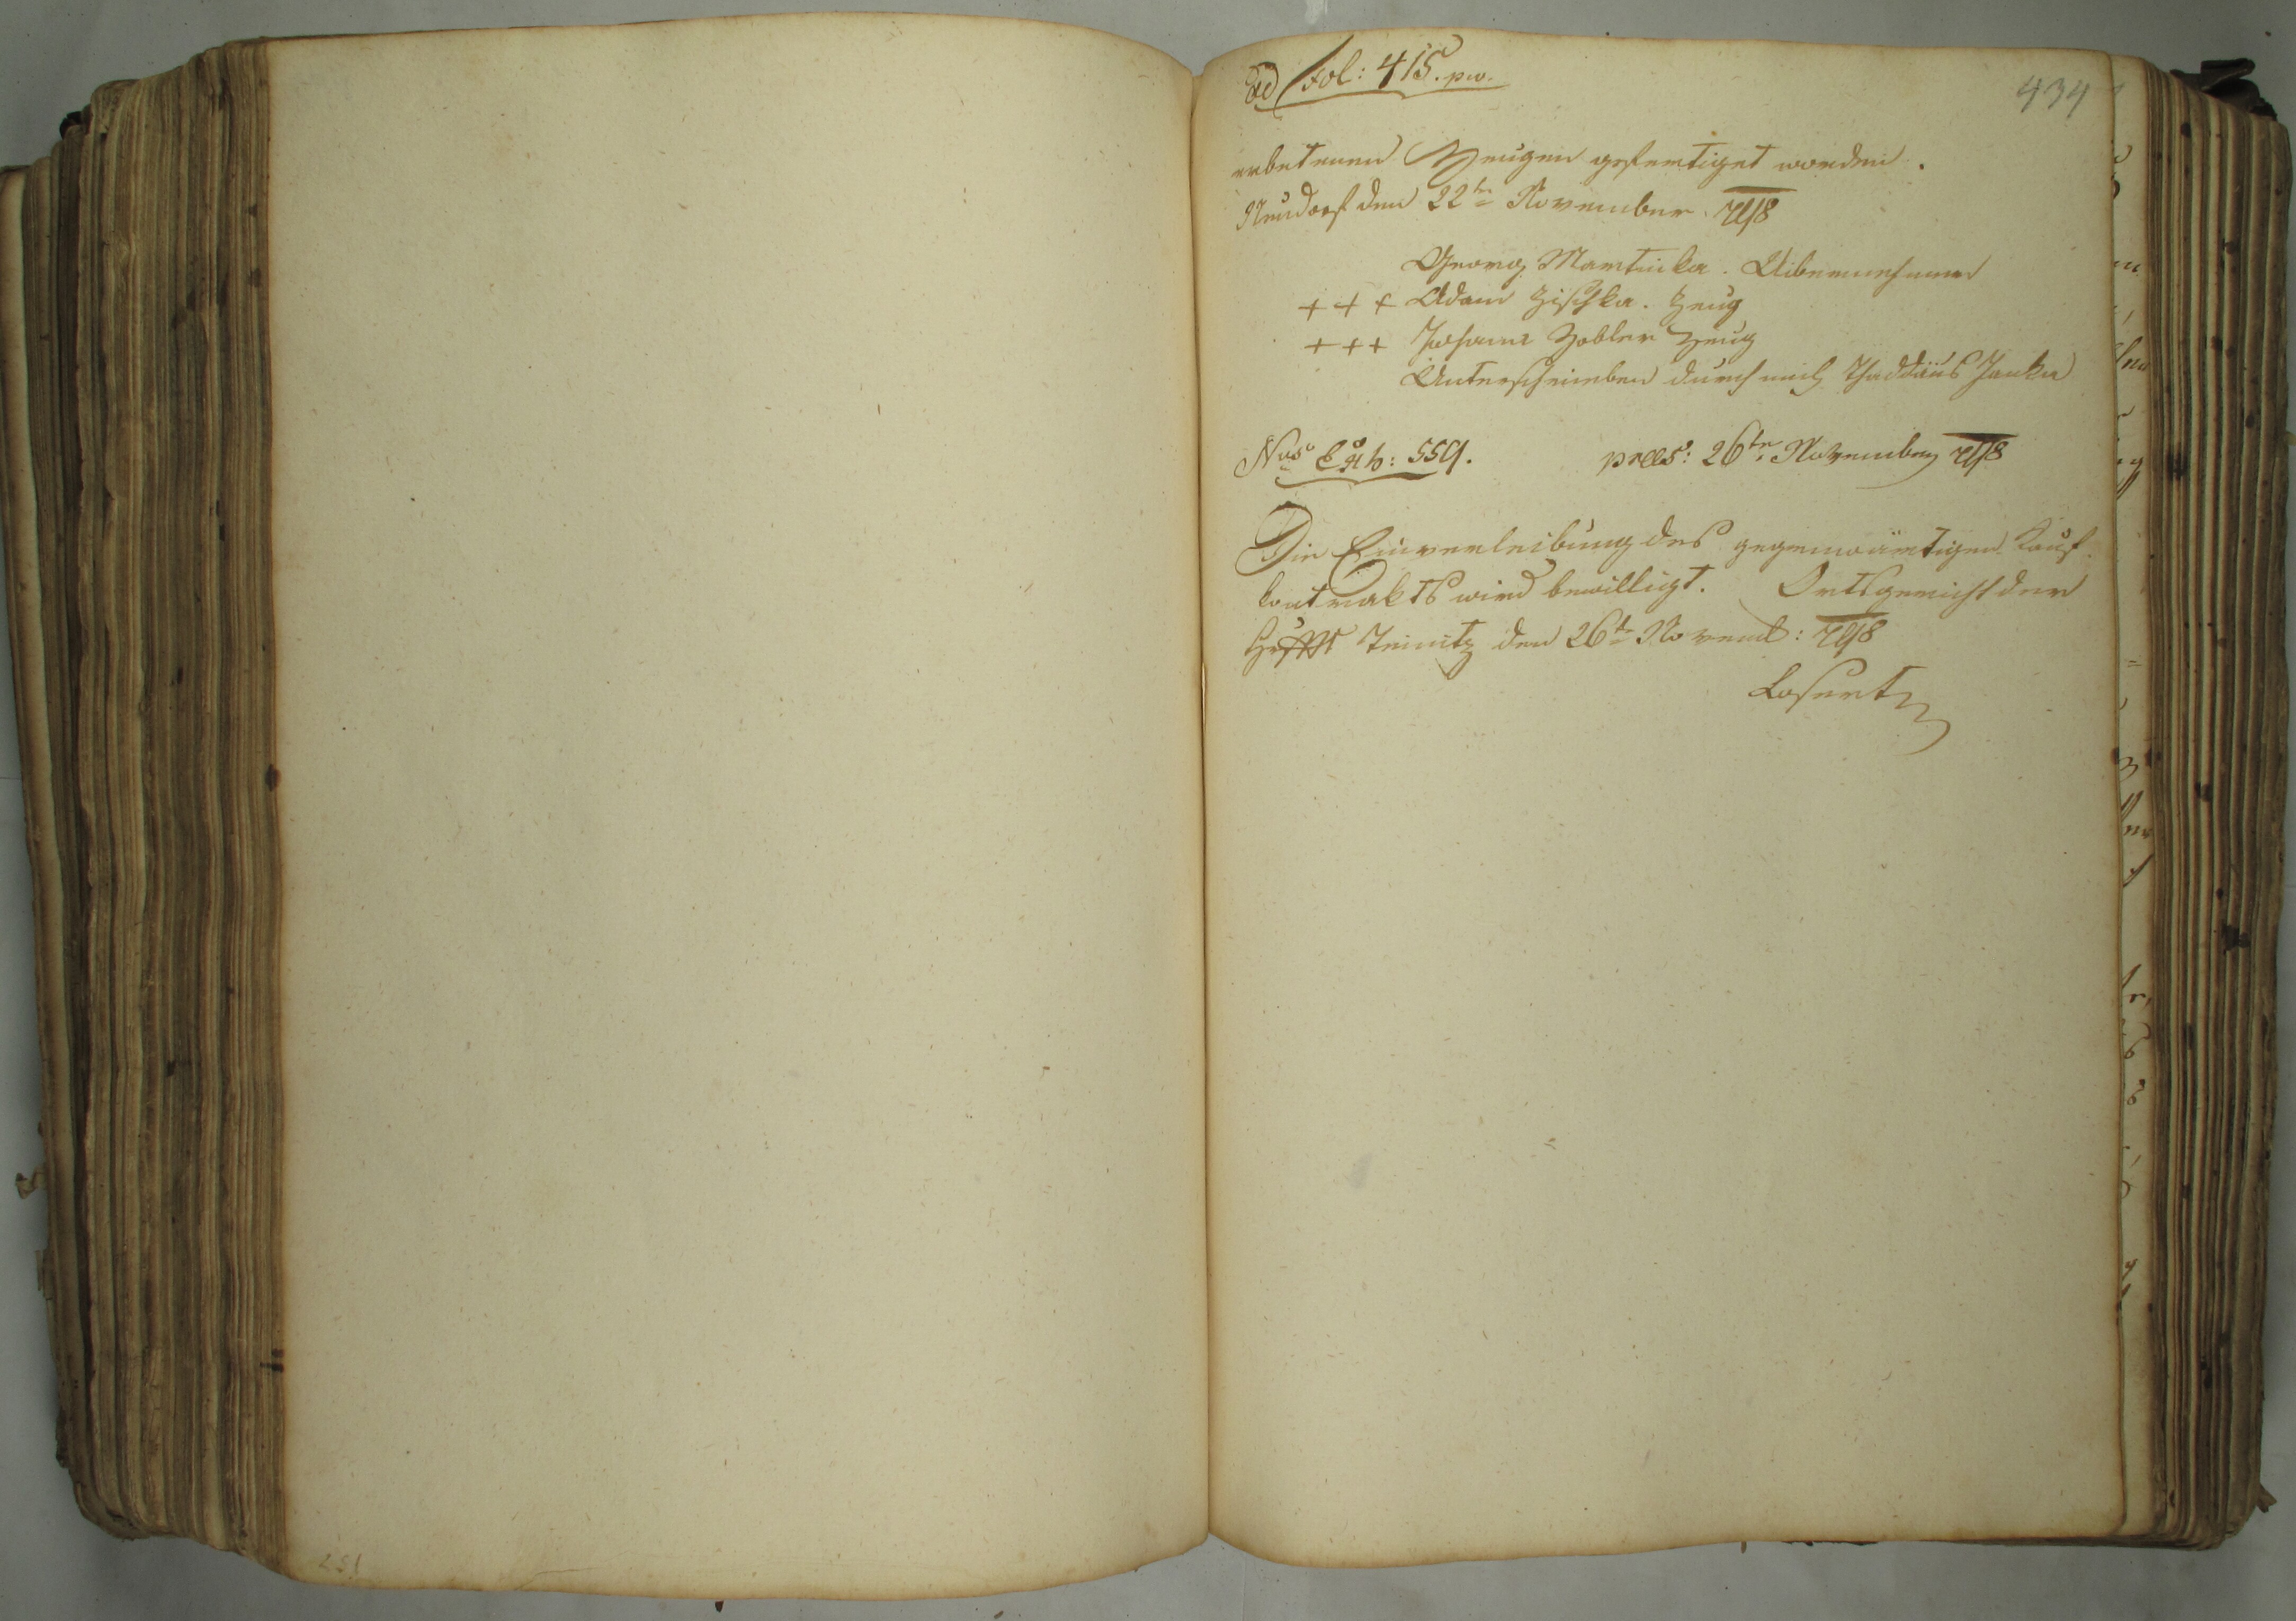 Ad Fol: 415. pw.
434
erbetenen Zeugen gefertiget worden.
Neudorf den 22te November 798
Georg Martinka. Uibernehmer
+ + + Adam Zischka. Zeug
+ + + Johann Hobler Zeug
Unterschrieben durch mich Thaddäus Janka
Nus Exh: 559. praes: 26te November 798
Die Einverleibung des gegenwärtigen Kauf-
kontrakts wird bewilligt. Ortsgericht der
Hrschft Teinitz den 26te Novemb: 798
Losert
251